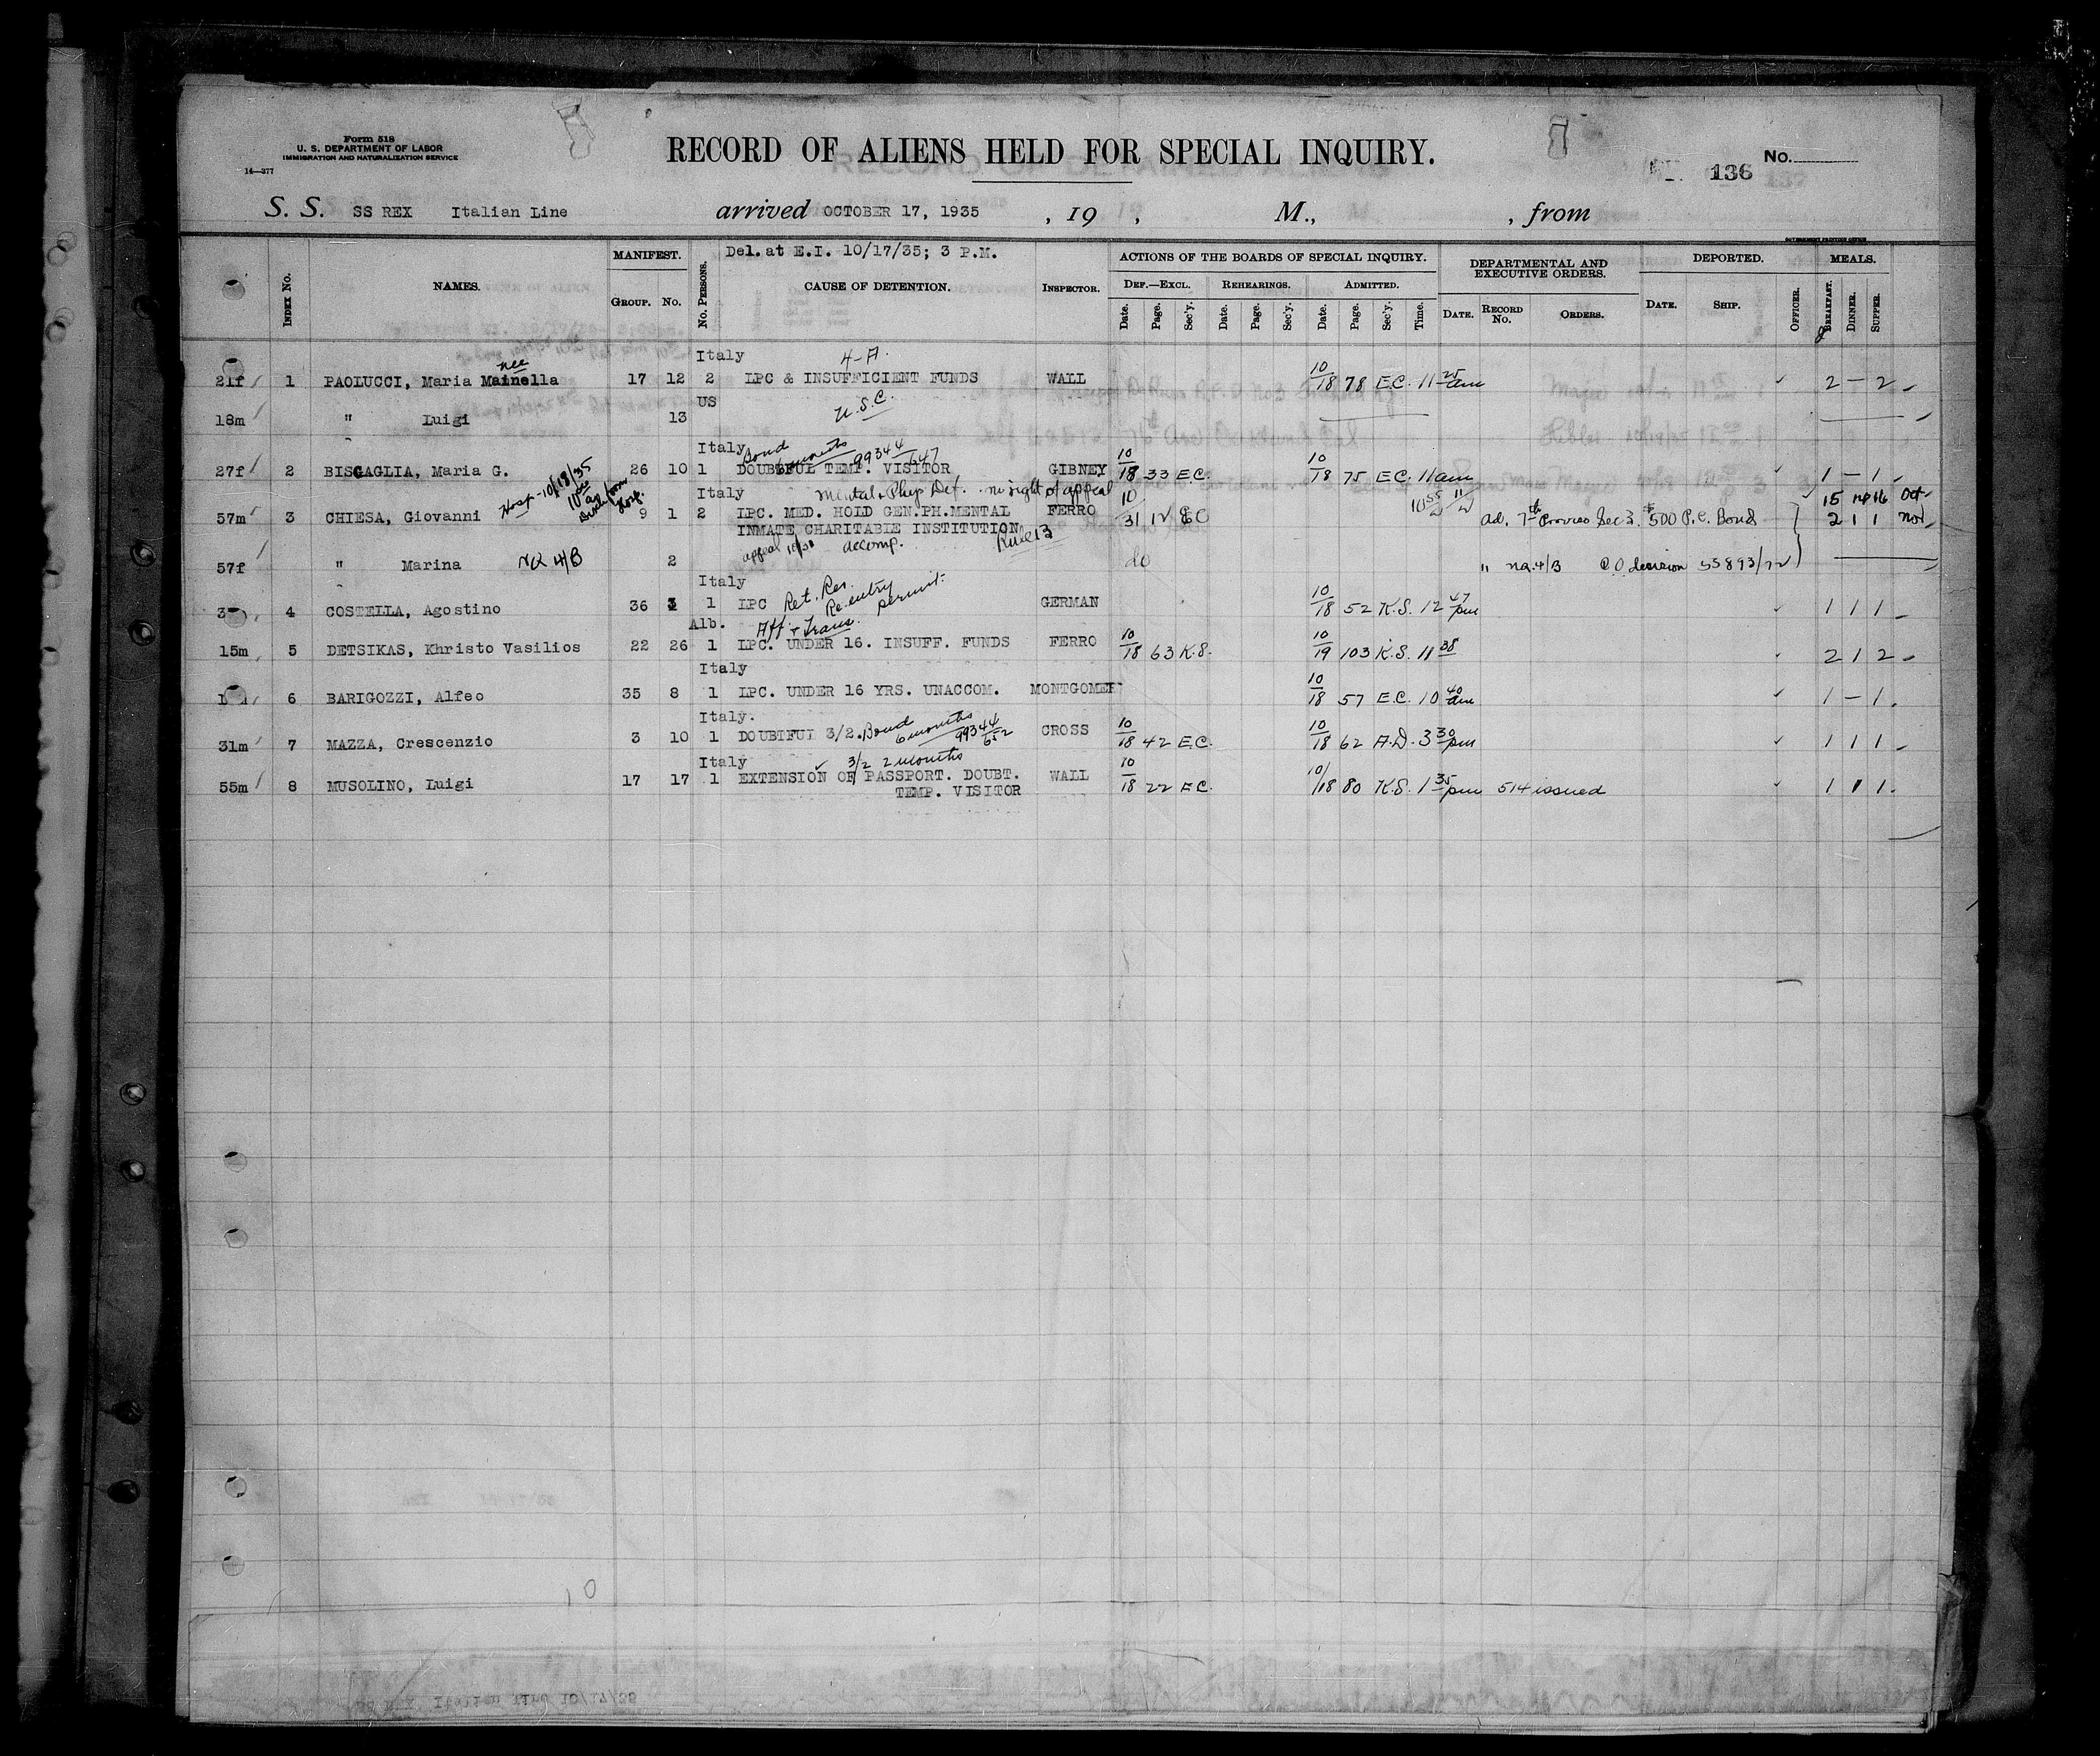 Form 518
U. S. DEPARTMENT OF LABOR
IMMIGRATION AND NATURALIZATION SERVICE
14—377
RECORD OF ALIENS HELD FOR SPECIAL INQUIRY.
No.
136
S. S. SS REX Italian Line arrived OCTOBER 17, 1935 , 19 , M., , from
GOVERNMENT PRINTING OFFICE
Del. at E.I. 10/17/35; 3 P.M.
INDEX NO. NAMES. MANIFEST. GROUP. NO. NO. PERSONS. CAUSE OF DETENTION. INSPECTOR. ACTIONS OF THE BOARDS OF SPECIAL INQUIRY. DEPARTMENTAL AND EXECUTIVE ORDERS. DEPORTED. MEALS.
DEF.—EXCL. REHEARINGS. ADMITTED.
Date. Page. Sec'y. Date. Page. Sec'y. Date. Page. Sec'y. Time. DATE. RECORD No. ORDERS. DATE. SHIP. OFFICER. BREAKFAST. DINNER. SUPPER.
Italy 4-A.
nee
21f 1 PAOLUCCI, Maria Mainella 17 12 2 LPC & INSUFFICIENT FUNDS WALL 10/18 78 E.C. 11 25 am 2 — 2
US U.S.C.
18m " Luigi 13
Italy Bond 99344/647
27f 2 BISCAGLIA, Maria G. 26 10 1 DOUBTFUL TEMP. VISITOR GIBNEY 10/18 33 E.C. 10/18 75 E.C. 11 am 1 — 1
Hosp-10/18/35
Italy Mental & Phys Def. no right of appeal 15 14 16 Oct
57m 3 CHIESA, Giovanni 9 1 2 LPC. MED. HOLD GEN.PH.MENTAL FERRO 10/31 12 EC 10 55 Ad. 7th Proviso Sec 3. $500 P.C. Bond 2 1 1 Nov
INMATE CHARITABLE INSTITUTION
appeal 10/31 accomp. Rule 13
57f " Marina NQ 4/B 2 do " NQ.4/B C.O. decision 55893/72
Italy
Ret. Res. Re-entry permit
4 COSTELLA, Agostino 36 1 LPC GERMAN 10/18 52 K.S. 12 47 pm 1 1 1
Alb. Aff. & Trans.
15m 5 DETSIKAS, Khristo Vasilios 22 26 1 LPC. UNDER 16. INSUFF. FUNDS FERRO 10/18 63 K.S. 10/19 103 K.S. 11 38 2 1 2
Italy
6 BARIGOZZI, Alfeo 35 8 1 LPC. UNDER 16 YRS. UNACCOM. MONTGOMER 10/18 57 E.C. 10 40 am 1 — 1
Italy. Bond 6 months 99344/652
31m 7 MAZZA, Crescenzio 3 10 1 DOUBTFUL 3/2. CROSS 10/18 42 E.C. 10/18 62 A.D. 3 30 pm 1 1 1
Italy 3/2 2 months
55m 8 MUSOLINO, Luigi 17 17 1 EXTENSION OF PASSPORT. DOUBT. WALL 10/18 22 E.C. 10/18 80 K.S. 1 35 pm 514 issued 1 1 1
TEMP. VISITOR